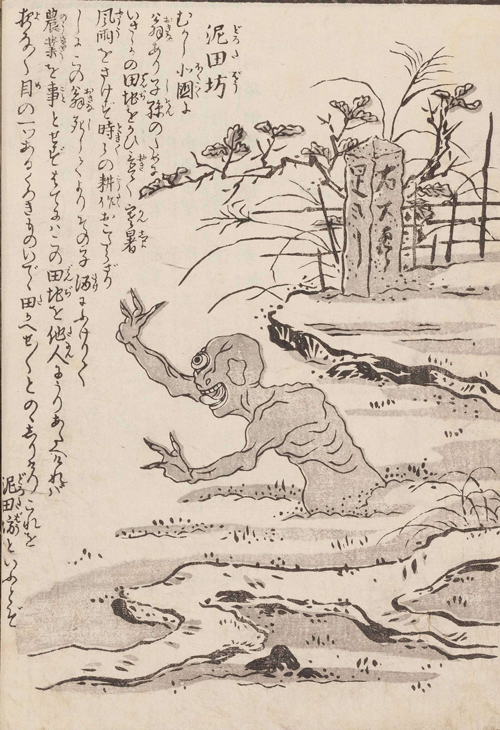 泥田坊
むかし北国に
翁あり子孫のために
いさゝかの田地をかひ置て寒暑
風雨をさけず時〻の耕作おこたらざり
しにこの翁死してよりその子酒にふけりて
農業を事とせずはてにはこの田地を他人にうりあたへければ
夜な〱目の一つあるくろきものいでゝ田かへせ〱とのゝしりけりこれを
泥田坊といふとぞ